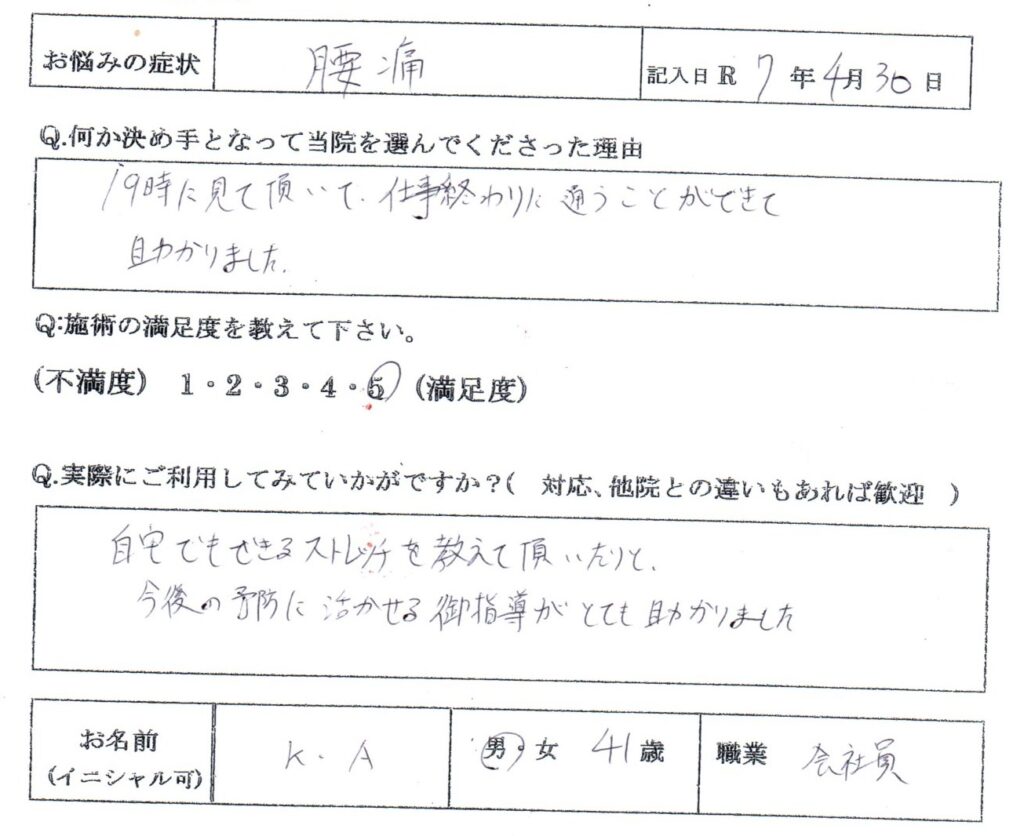 お悩みの症状 腰痛 記入日 R 7 年 4 月 30 日
Q.何か決め手となって当院を選んでくださった理由
19時に見て頂いて、仕事終わりに通うことができて
助かりました。
Q:施術の満足度を教えて下さい。
(不満度) 1・2・3・4・5 (満足度)
Q.実際にご利用してみていかがですか?( 対応、他院との違いもあれば歓迎 )
自宅でもできるストレッチを教えて頂いたりと、
今後の予防に活かせる御指導がとても助かりました
お名前 K・A 男・女 41歳 職業 会社員
(イニシャル可)